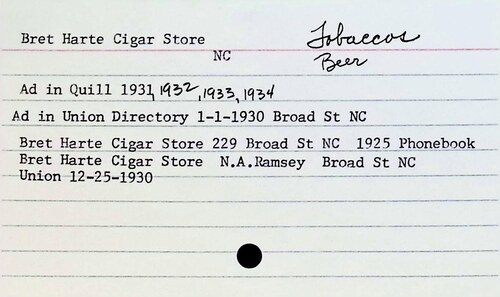 Bret Harte Cigar Store Tobaccos
NC Beer
Ad in Quill 1931, 1932, 1933, 1934
Ad in Union Directory 1-1-1930 Broad St NC
Bret Harte Cigar Store 229 Broad St NC 1925 Phonebook
Bret Harte Cigar Store N.A.Ramsey Broad St NC
Union 12-25-1930